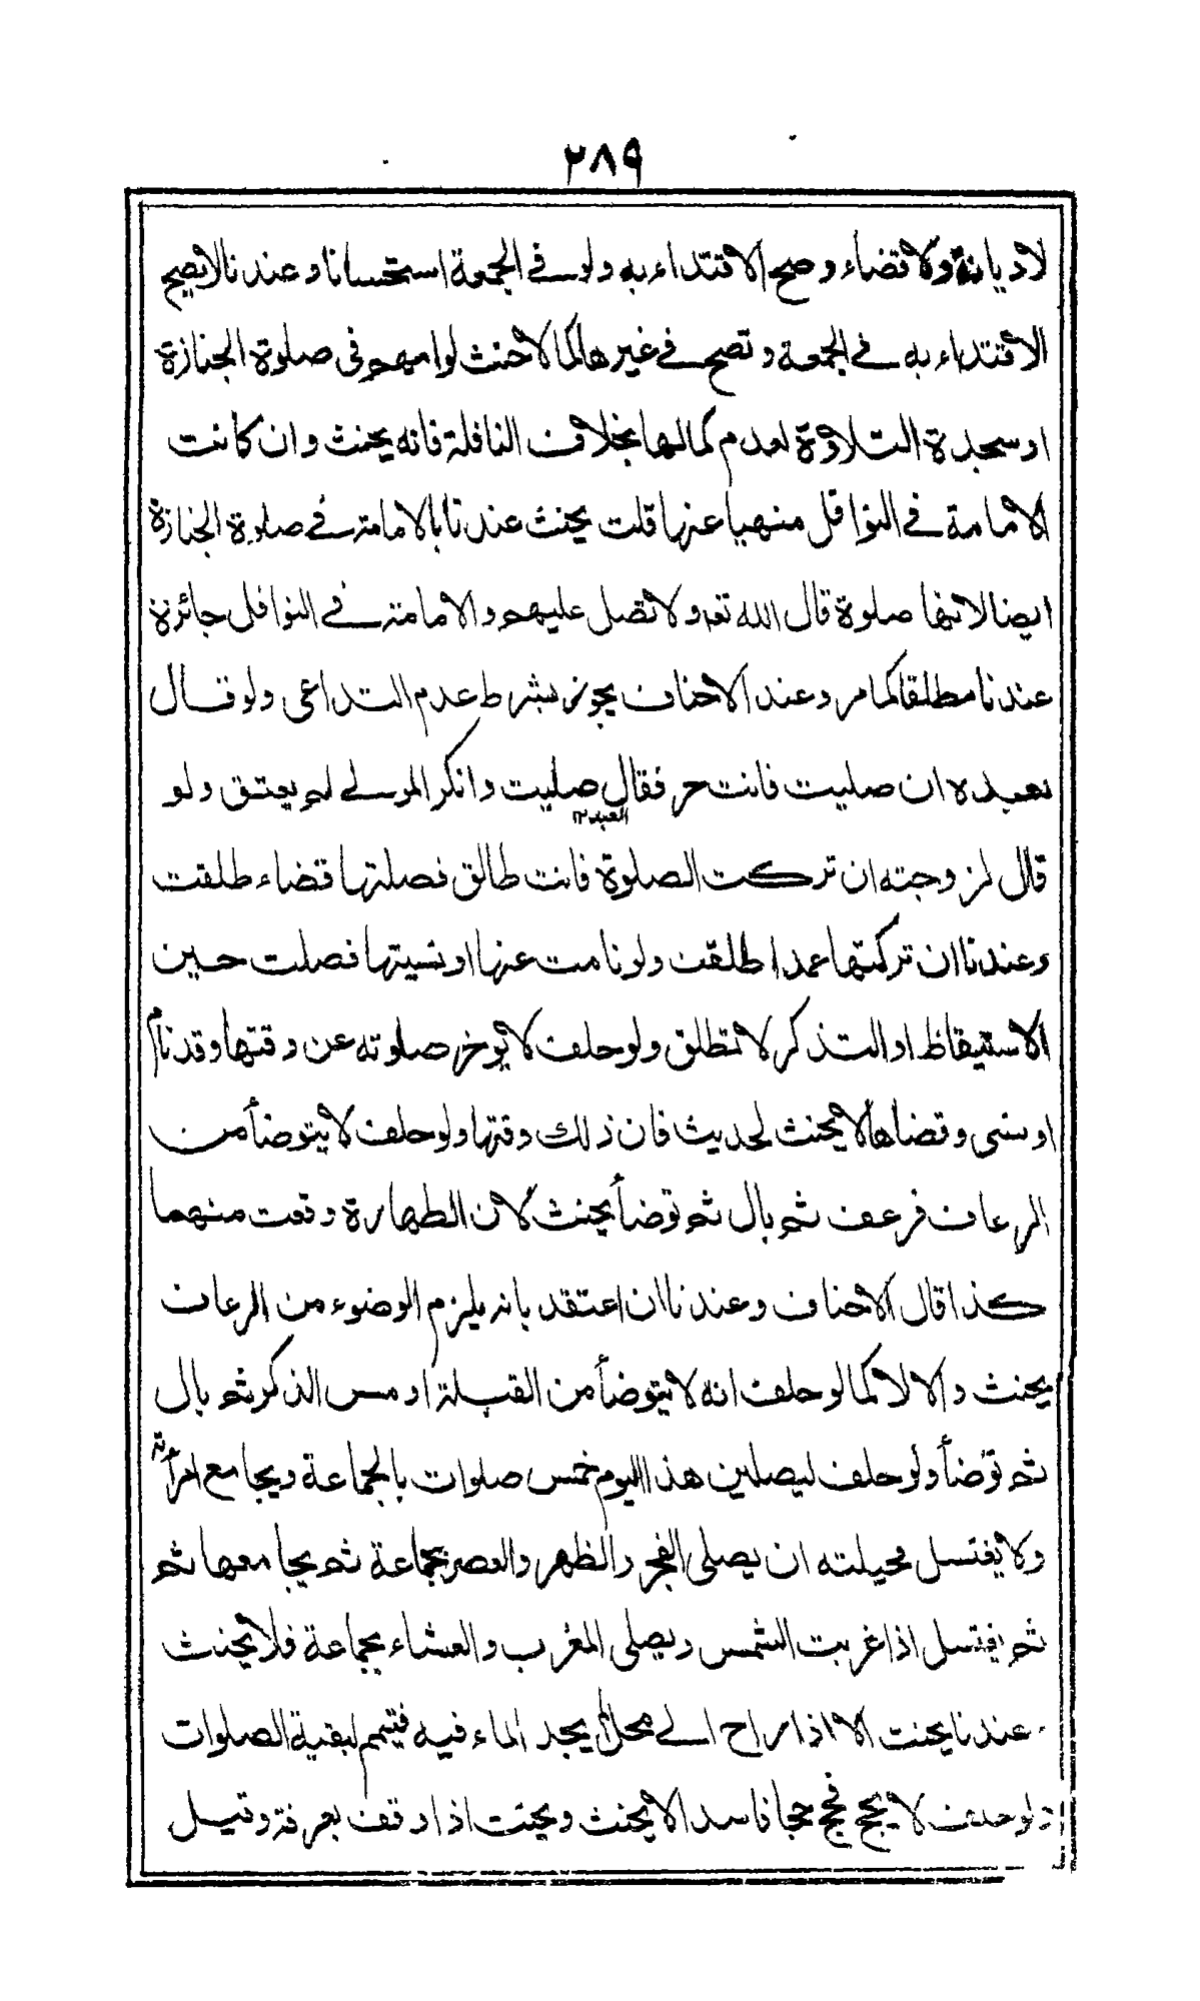 ٢٨٩
لا ديانة ولا قضاء وصح الاقتداء به ولو في الجمعة استحسانا وعندنا لا يصح
الاقتداء به في الجمعة وتصح في غيرها كما لا حنث لو امهم في صلوة الجنازة
او سجدة التلاوة لعدم كمالها بخلاف النافلة فانه يحنث وان كانت
الامامة في النوافل منهيا عنها قلت يحنث عندنا بالامامة في صلوة الجنازة
ايضا لانها صلوة قال الله تعه ولا تصل عليهم والامامة في النوافل جائزة
عندنا مطلقا كما مر وعند الاحناف يجوز بشرط عدم التداعى ولو قال
لعبده ان صليت فانت حر فقال صليت وانكر المولے لم يعتق ولو
العبد١٢
قال لزوجته ان تركت الصلوة فانت طالق فصلتها قضاء طلقت
وعندنا ان تركتها عمدا طلقت ولو نامت عنها او نسيتها فصلت حين
الاستيقاظ او التذكر لا تطلق ولو حلف لا يوخر صلوته عن وقتها وقد نام
او نسى وقضاها لا يحنث لحديث فان ذلك وقتها ولو حلف لا يتوضأ من
الرعاف فرعف ثم بال ثم توضأ يحنث لان الطهارة وقعت منهما
كذا قال الاحناف وعندنا ان اعتقد بانه يلزم الوضوء من الرعاف
يحنث والا لا كما لو حلف انه لا يتوضأ من القبلة او مس الذكر ثم بال
ثم توضأ ولو حلف ليصلين هذا اليوم خمس صلوات بالجماعة ويجامع امرأته
ولا يغتسل فحيلته ان يصلى الفجر والظهر والعصر بجماعة ثم يجامعها ثم
ثم يغتسل اذا غربت الشمس ويصلى المغرب والعشاء بجماعة فلا يحنث
عندنا يحنث الا اذا راح الے محل لا يجد الماء فيه فتيمم لبقية الصلوات
ولو حلف لا يحج فحج حجا فاسدا لا يحنث ويحنث اذا وقف بعرفة وقيل